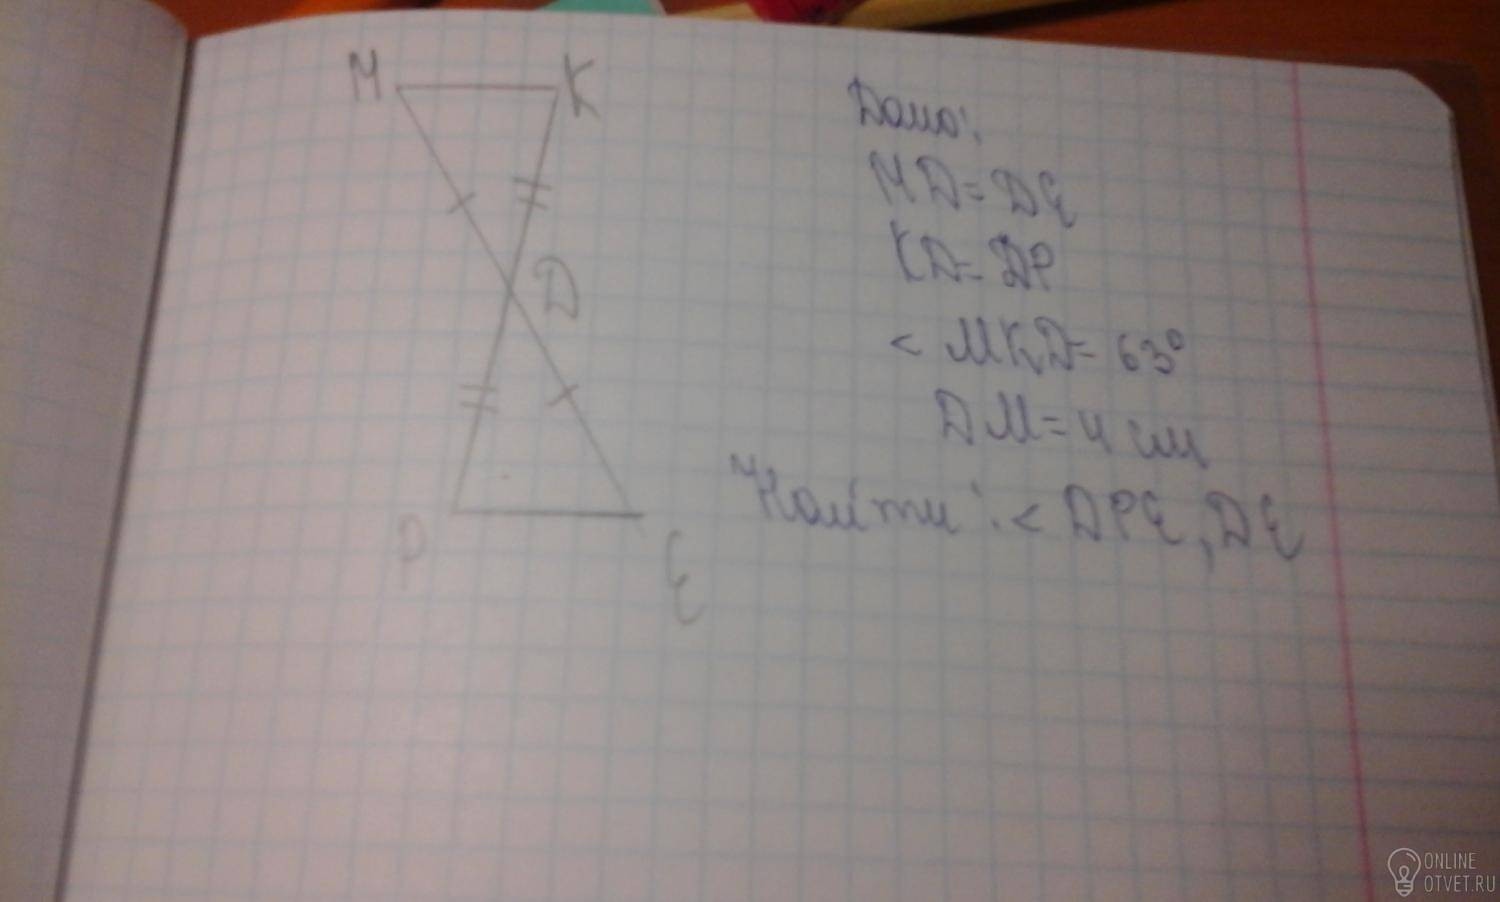 M K
Дано:
MD=DE
KD=DP
D
< MKD= 63°
DM=4 см
Найти: < DPE, DE
P E
ONLINE
OTVET.RU